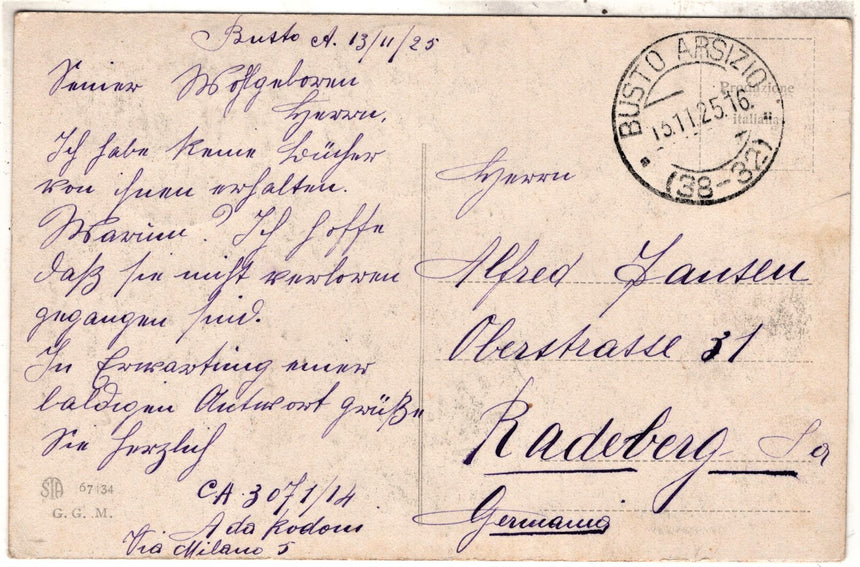 Busto A. 13/11/25
Seiner Wohlgeboren
Herrn.
Ich habe keine Bücher
von ihnen erhalten.
Warum? Ich hoffe
daß sie nicht verloren
gegangen sind.
In Erwartung einer
baldigen Antwort grüße
Sie herzlich
CA. 3071/14
Ada
Via Milano 5
67134
G. G. M.
BUSTO ARSIZIO
13.11.25.16
(38-32)
Produzione
italiana
Herrn
Alfred Jansen
Oberstrasse 31
Radeberg Sa
Germania